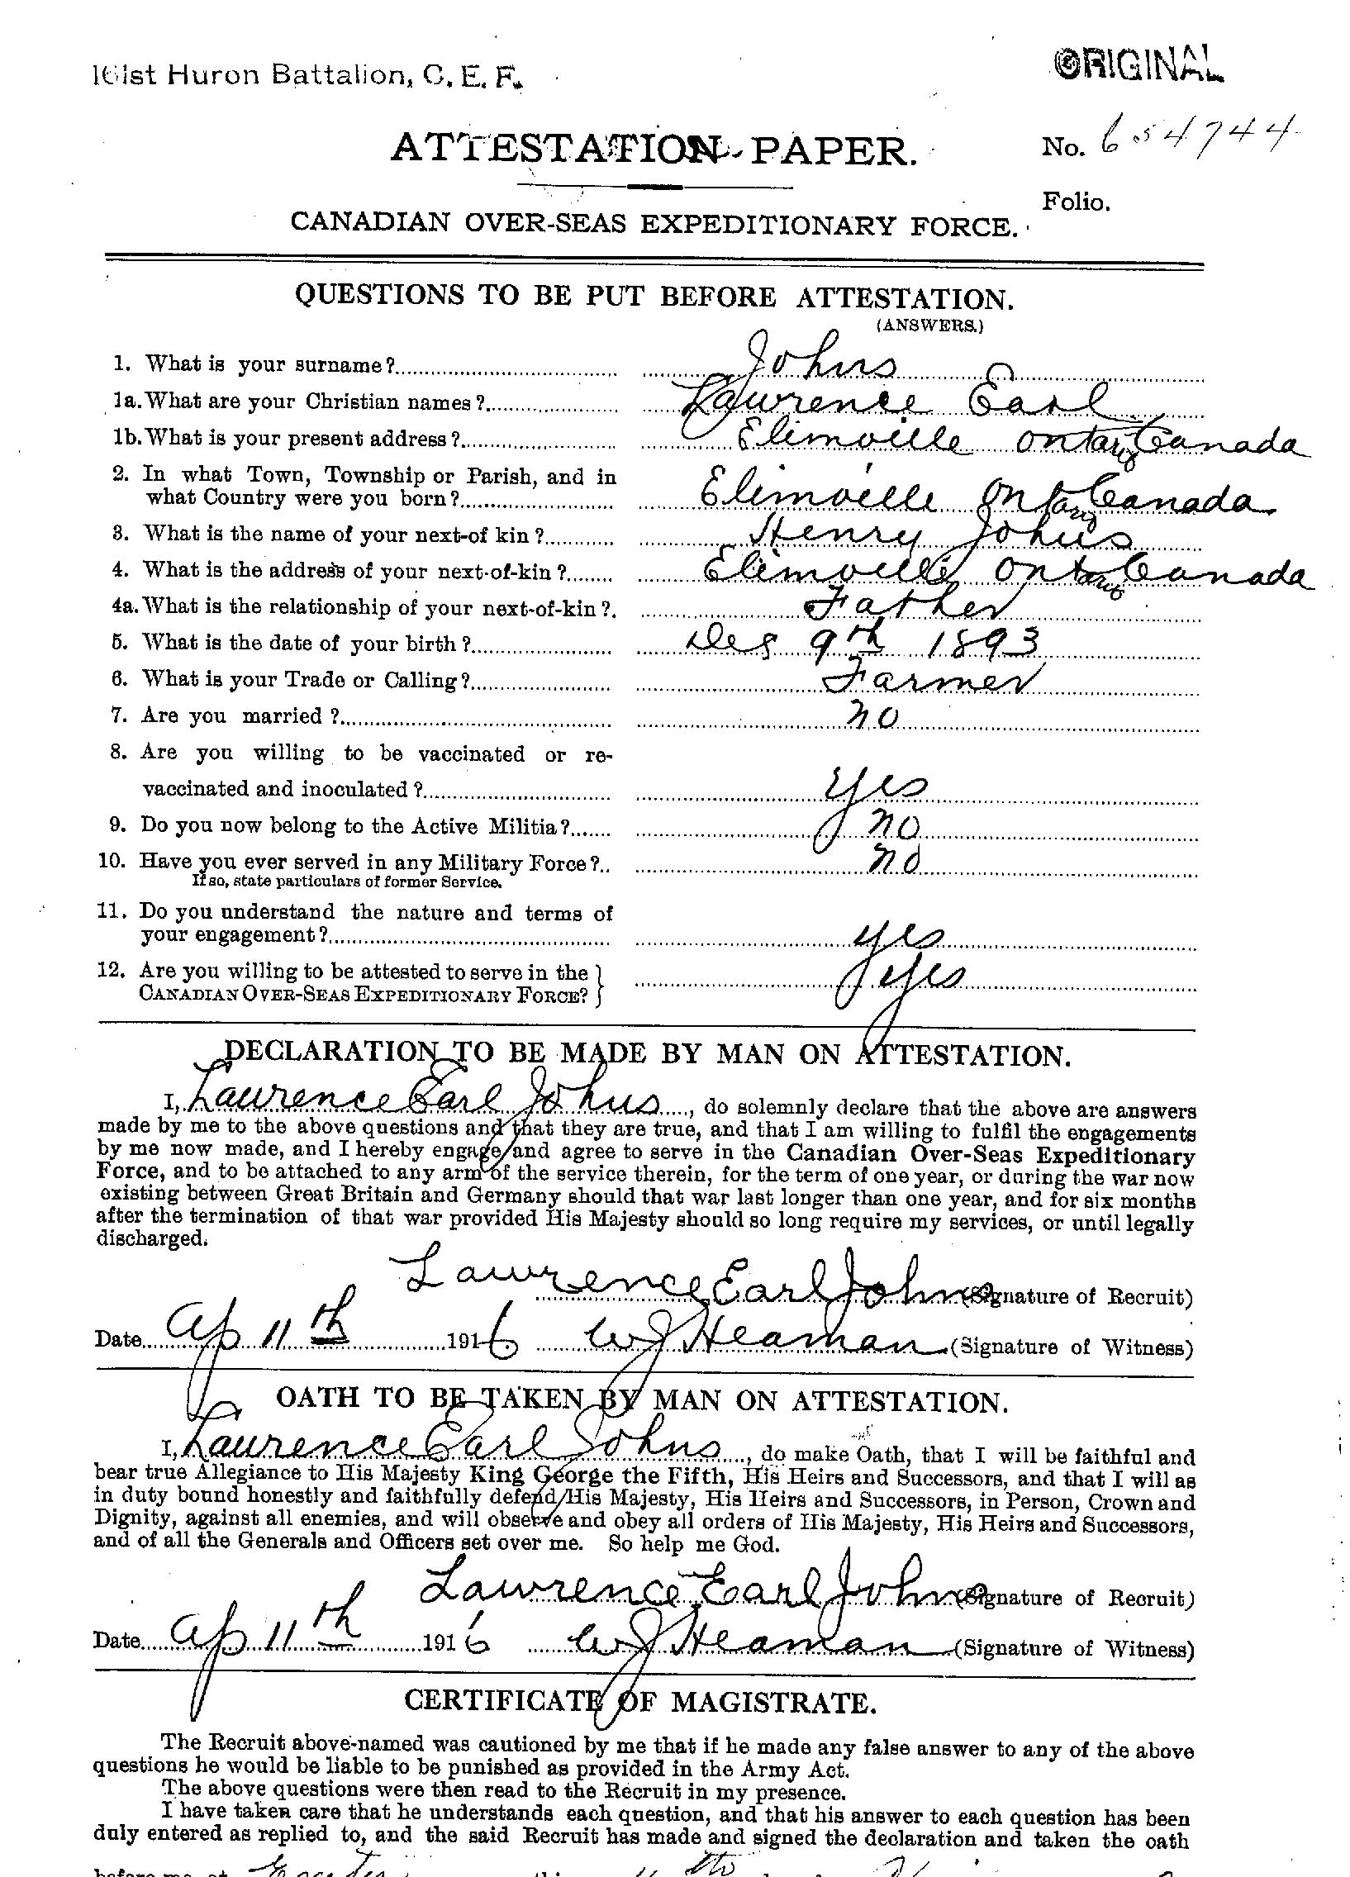 161st Huron Battalion, C. E. F.
ORIGINAL
ATTESTATION PAPER.
No. 654744
Folio.
CANADIAN OVER-SEAS EXPEDITIONARY FORCE.
QUESTIONS TO BE PUT BEFORE ATTESTATION.
(ANSWERS.)
1. What is your surname? Johns
1a. What are your Christian names? Lawrence Earl
1b. What is your present address? Elimville Ontario Canada
2. In what Town, Township or Parish, and in
what Country were you born? Elimville Ontario Canada
3. What is the name of your next-of kin? Henry Johns
4. What is the address of your next-of-kin? Elimville Ontario Canada
4a. What is the relationship of your next-of-kin? Father
5. What is the date of your birth? 9th 1893
6. What is your Trade or Calling? Farmer
7. Are you married? no
8. Are you willing to be vaccinated or re-
vaccinated and inoculated? yes
9. Do you now belong to the Active Militia? no
10. Have you ever served in any Military Force? no
If so, state particulars of former Service.
11. Do you understand the nature and terms of
your engagement? yes
12. Are you willing to be attested to serve in the
CANADIAN OVER-SEAS EXPEDITIONARY FORCE? yes
DECLARATION TO BE MADE BY MAN ON ATTESTATION.
I, Lawrence Earl Johns, do solemnly declare that the above are answers
made by me to the above questions and that they are true, and that I am willing to fulfil the engagements
by me now made, and I hereby engage and agree to serve in the Canadian Over-Seas Expeditionary
Force, and to be attached to any arm of the service therein, for the term of one year, or during the war now
existing between Great Britain and Germany should that war last longer than one year, and for six months
after the termination of that war provided His Majesty should so long require my services, or until legally
discharged.
Lawrence Earl Johns (Signature of Recruit)
Date Ap 11th 1916 WJ Heaman (Signature of Witness)
OATH TO BE TAKEN BY MAN ON ATTESTATION.
I, Lawrence Earl Johns, do make Oath, that I will be faithful and
bear true Allegiance to His Majesty King George the Fifth, His Heirs and Successors, and that I will as
in duty bound honestly and faithfully defend His Majesty, His Heirs and Successors, in Person, Crown and
Dignity, against all enemies, and will observe and obey all orders of His Majesty, His Heirs and Successors,
and of all the Generals and Officers set over me. So help me God.
Lawrence Earl Johns (Signature of Recruit)
Date Ap 11th 1916 WJ Heaman (Signature of Witness)
CERTIFICATE OF MAGISTRATE.
The Recruit above-named was cautioned by me that if he made any false answer to any of the above
questions he would be liable to be punished as provided in the Army Act.
The above questions were then read to the Recruit in my presence.
I have taken care that he understands each question, and that his answer to each question has been
duly entered as replied to, and the said Recruit has made and signed the declaration and taken the oath
before me, at